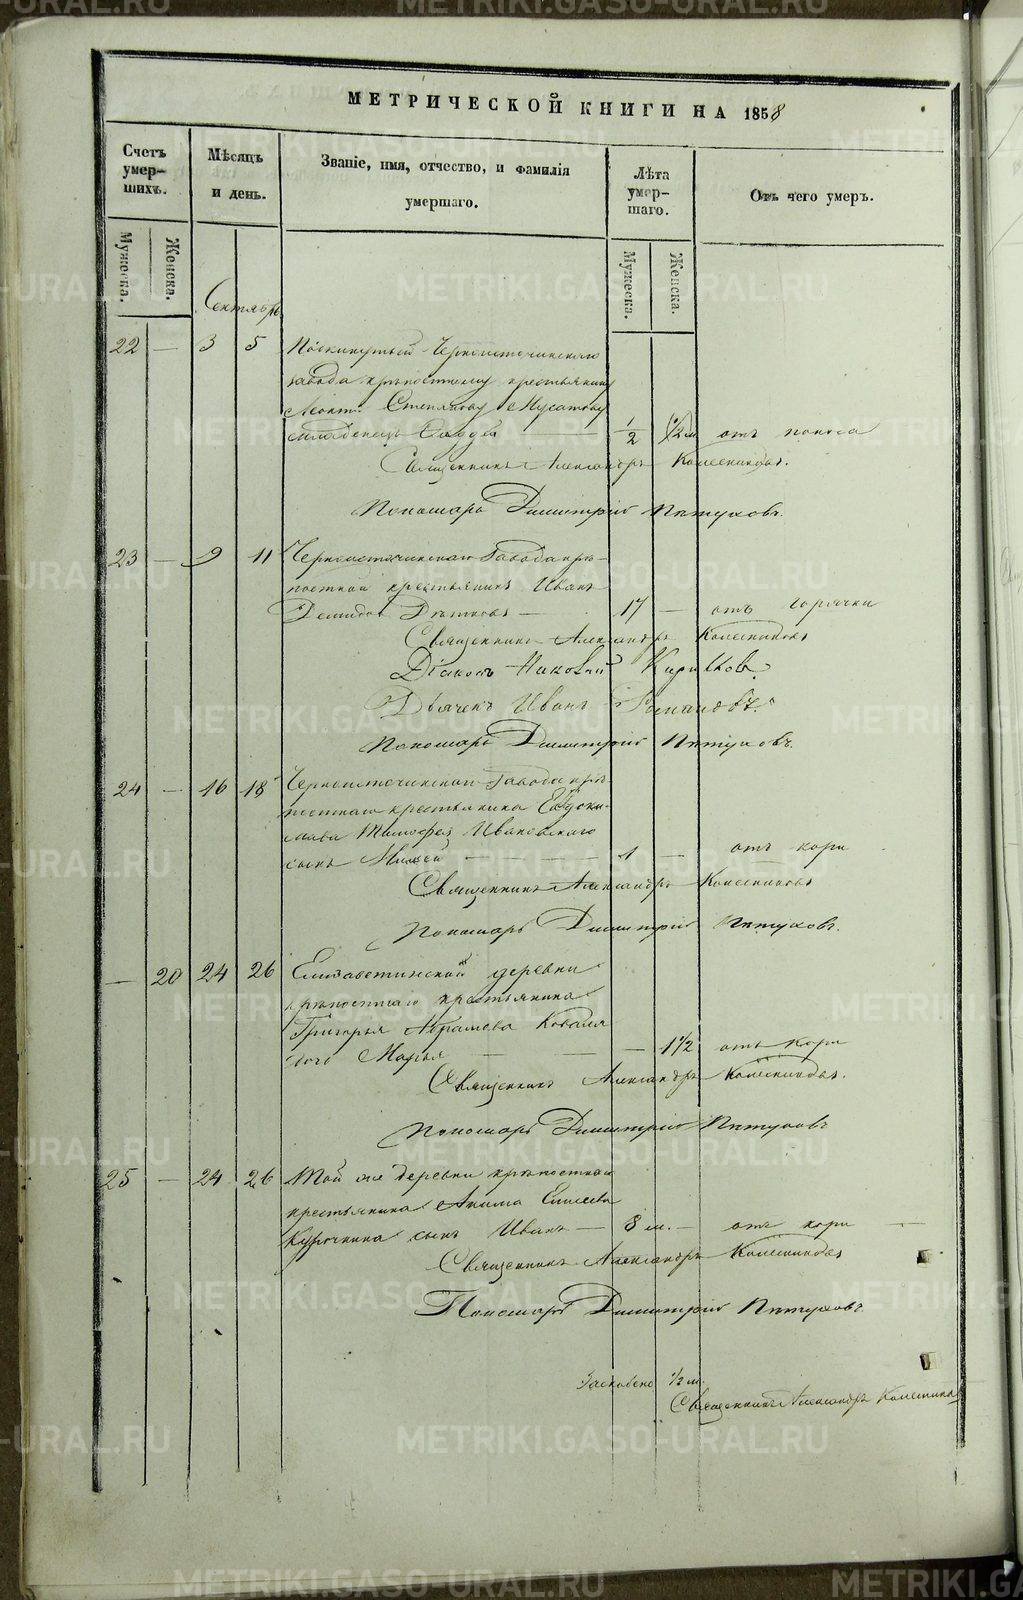 МЕТРИЧЕСКОЙ КНИГИ НА 1858
Счетъ умер-шихъ.
Мѣсяцъ и день.
Званіе, имя, отчество, и фамилія умершаго.
Лѣта умер-шаго.
Отъ чего умеръ.
Мужеска.
Женска.
Мужеска.
Женска.
Сентябрь
22 — 3 5 Подкинутый Черноисточинскаго
завода крѣпостному крестьянину
Леонт. Степанову Мусатову
младенецъ — 1/2 1/2 м. отъ поноса
Священникъ Александръ Колесниковъ.
Пономарь Димитрій Пѣтуховъ.
23 — 9 11 Черноисточинскаго Завода крѣ-
постной крестьянинъ Иванъ
Демидовъ — 17 — отъ горячки
Священникъ Александръ Колесниковъ
Діаконъ Николай
Дьячекъ Иванъ
Пономарь Димитрій Пѣтуховъ.
24 — 16 18 Черноисточинскаго Завода крѣ-
постнаго крестьянина Евдоки-
мова Ивановскаго
сынъ — 1 — отъ кори
Священникъ Александръ Колесниковъ
Пономарь Димитрій Пѣтуховъ.
— 20 24 26 Елизаветинской деревни
крѣпостнаго крестьянина
Григорья Абрамова Коваля
дочь Марья — — 1 1/2 отъ кори
Священникъ Александръ Колесниковъ.
Пономарь Димитрій Пѣтуховъ
25 — 24 26 Той же деревни крѣпостнаго
крестьянина Акима Елисеева
Курочкина сынъ Иванъ — 8 м. — отъ кори
Священникъ Александръ Колесниковъ
Пономарь Димитрій Пѣтуховъ
1/2 м.
Священникъ Александръ Колесниковъ
METRIKI.GASO-URAL.RU